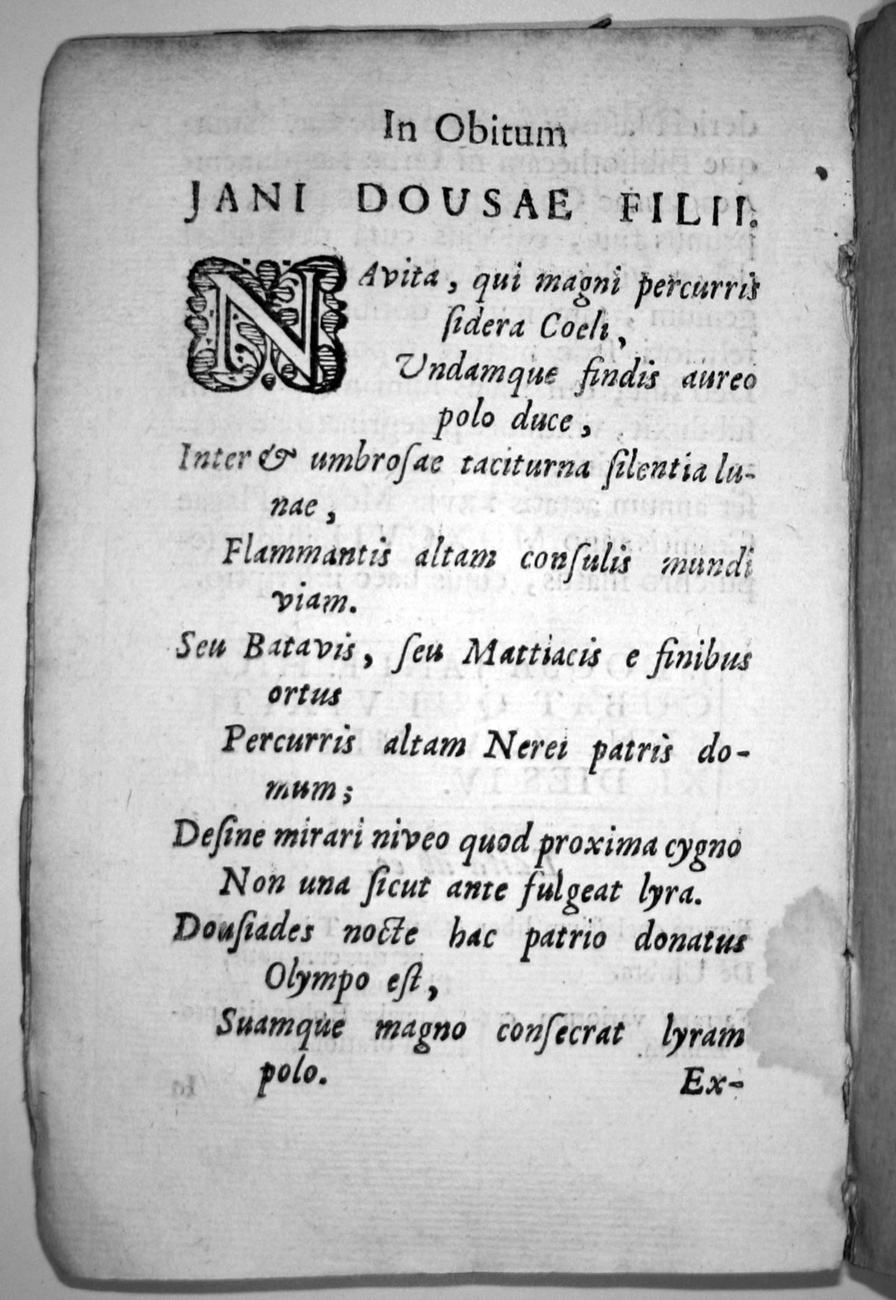 In Obitum
JANI DOUSAE FILII.
NAvita, qui magni percurris
ſidera Coeli,
Undamque findis aureo
polo duce,
Inter & umbroſae taciturna ſilentia lu-
nae,
Flammantis altam conſulis mundi
viam.
Seu Batavis, ſeu Mattiacis e finibus
ortus
Percurris altam Nerei patris do-
mum;
Deſine mirari niveo quod proxima cygno
Non una ſicut ante fulgeat lyra.
Douſiades nocte hac patrio donatus
Olympo eſt,
Suamque magno conſecrat lyram
polo.
Ex-